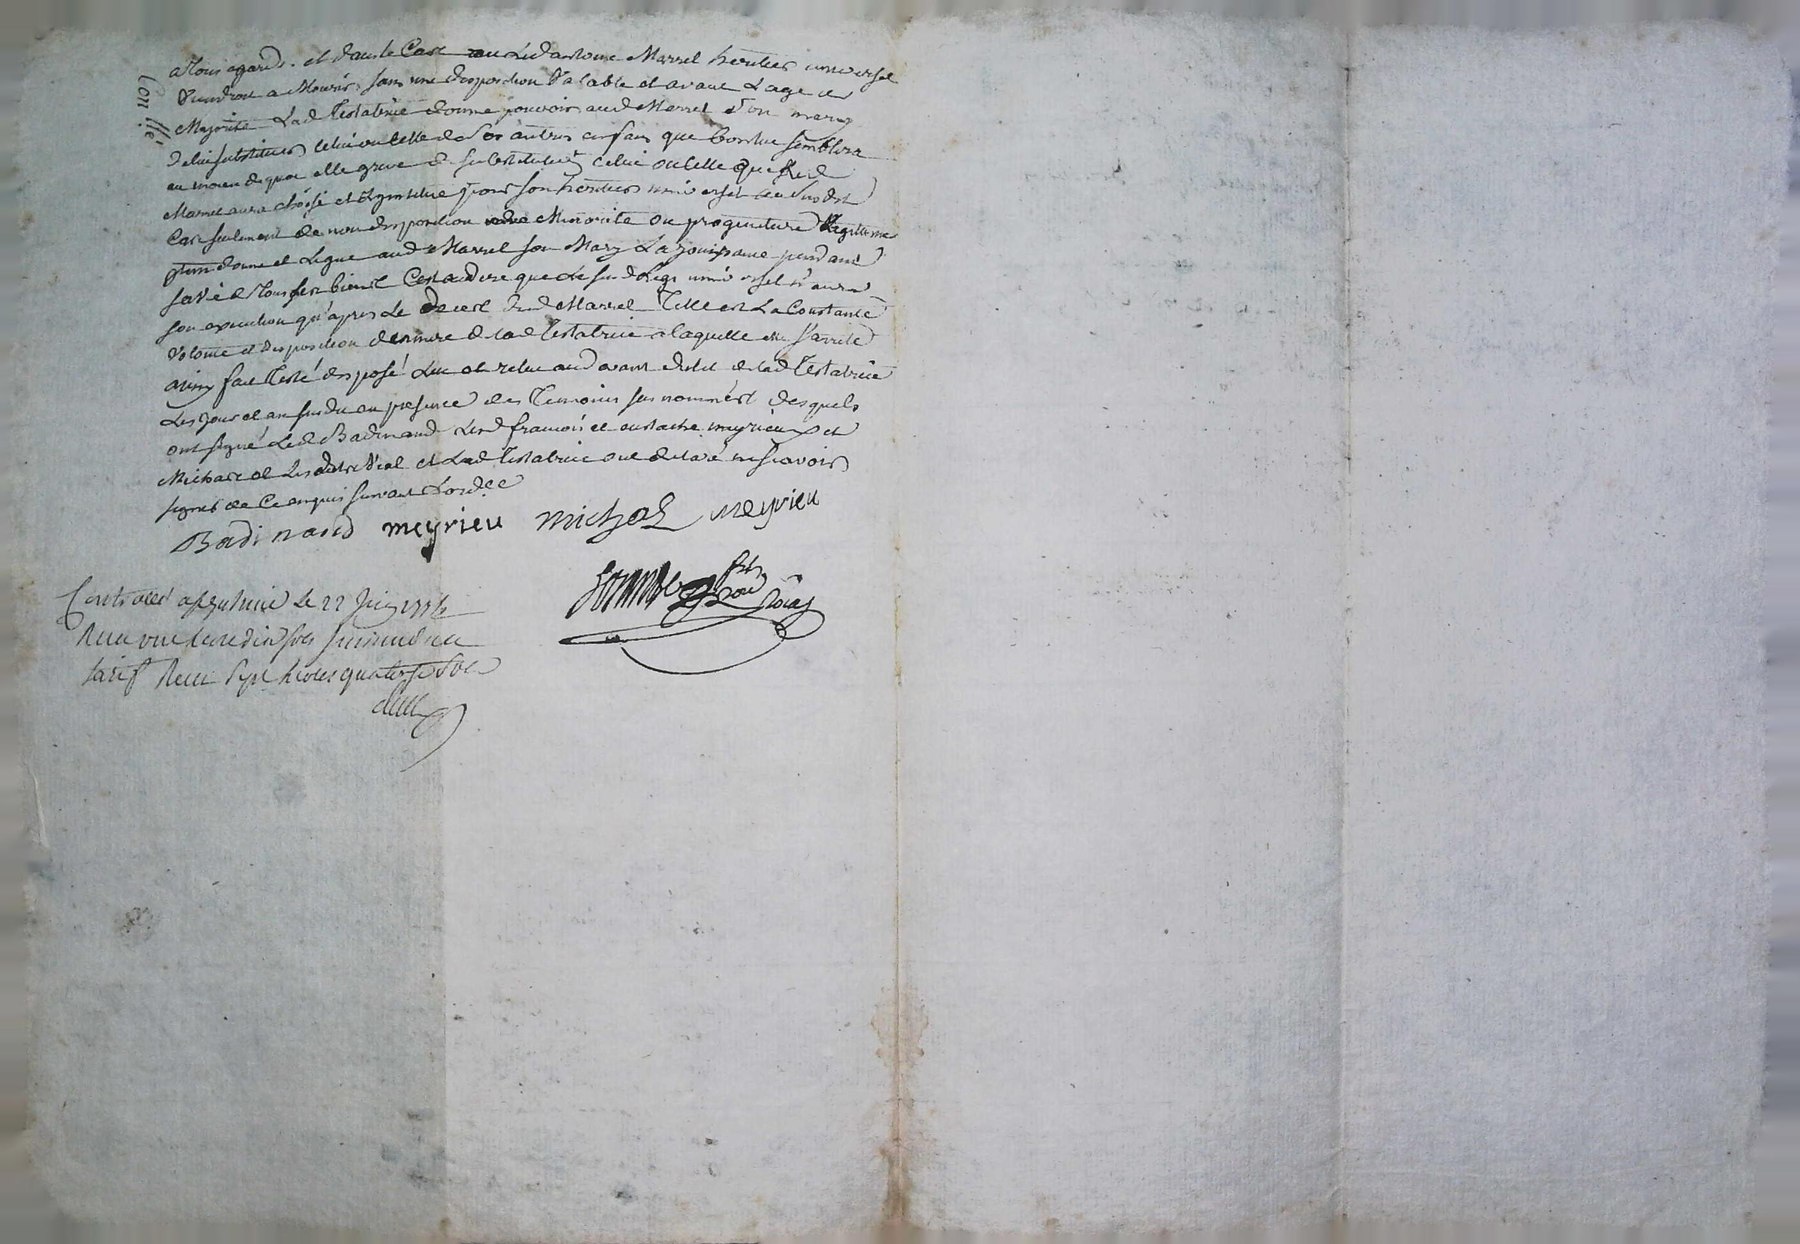 a tous egards. et dans le Cas ou Led antoine Marrel heritier universel
Viendroit a Mourir sans une disposition Valable et avant L'age de
Majorité Lad Testatrice donne pouvoir aud Marrel son mary
de lui substituer celui ou celle de ses autres enfans que bon lui semblera
au moien de quoi elle greve de substitution celui ou celle que Led
Marrel aura choisi et L'institue pour son heritier universel au susdit
Cas seulement de non disposition Minorité ou progeniture Legitime
donne et Legue aud Marrel son Mary La jouissance pendant
sa Vie de Tous ses biens C'est a dire que Le susd Legs universel n'aura
son execution qu'apres Le deces dud Marrel Telle est La Constante
Volonté et disposition derniere de lad Testatrice a laquelle elle s'arrete
ainsy fait Testé disposé Lu et relu aud avant dit de lad Testatrice
Les jour et an susdit en presence des Temoins sus nommés desquels
ont signé Led Badinand Lesd francois et eustache meyrieux et
Michat et Les autres et Lad Testatrice ont declaré ne scavoir
signer de Ce enquis suivant L'ord.ce
Badinand meyrieu michal meyrieu
Controllé a le 22 Juin
Recu une livre dix sols suivant
tarif Recu sept livres quatorze sols